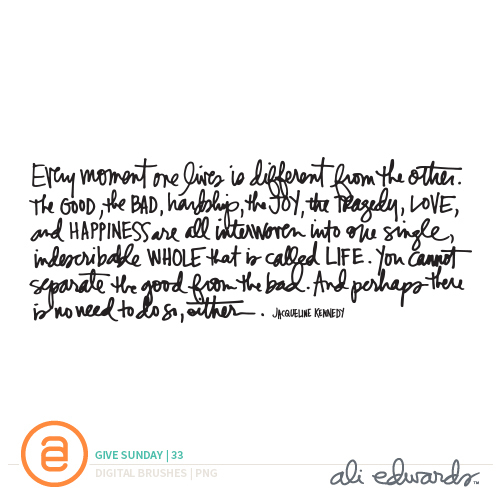 Every moment one lives is different from the other.
The GOOD, the BAD, hardship, the JOY, the Tragedy, LOVE,
and HAPPINESS are all interwoven into one single,
indescribable WHOLE that is called LIFE. You cannot
separate the good from the bad. And perhaps there
is no need to do so, either. JACQUELINE KENNEDY
GIVE SUNDAY | 33
DIGITAL BRUSHES | PNG
ali edwards™